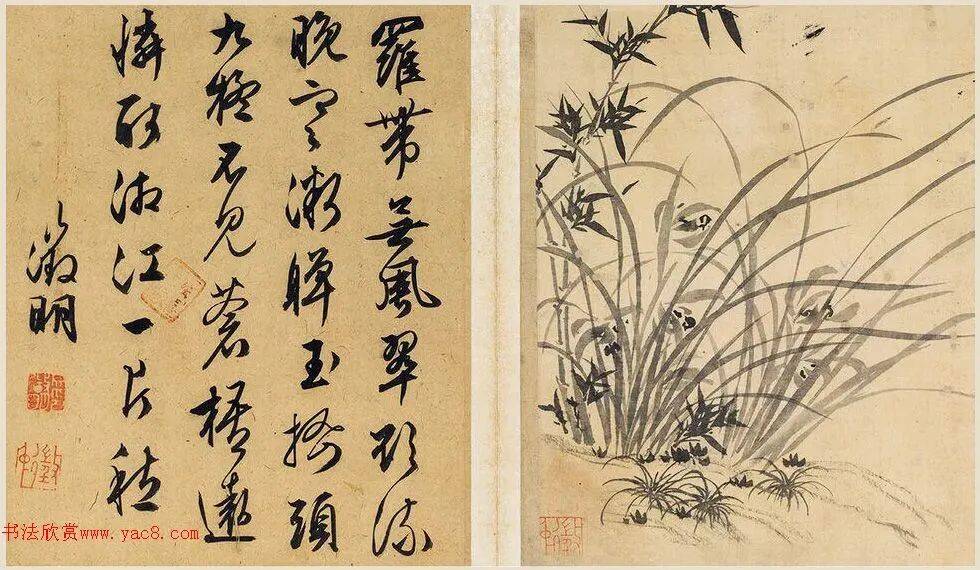 羅帶無風翠欲流
晚寒微嚲玉搔頭
九疑不見蒼梧遠
憐取湘江一片愁
徵明
书法欣赏www.yac8.com